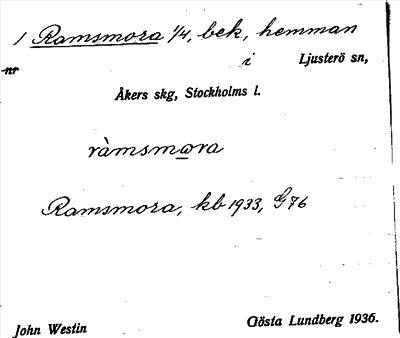 1 Ramsmora 1/4, bek, hemman
i Ljusterö sn,
nr
Åkers skg, Stockholms l.
ràmsmωra
Ramsmora, kb 1933, G 76
John Westin Gösta Lundberg 1936.